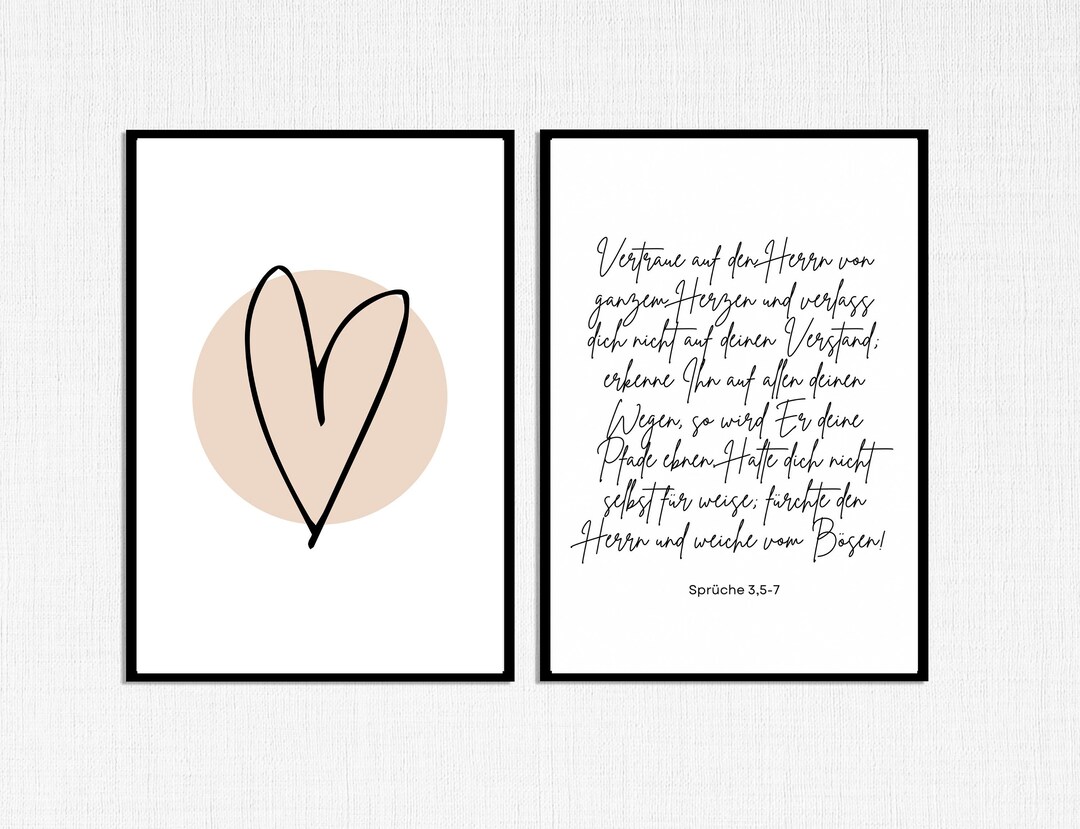 Vertraue auf den Herrn von
ganzem Herzen und verlass
dich nicht auf deinen Verstand;
erkenne Ihn auf allen deinen
Wegen, so wird Er deine
Pfade ebnen. Halte dich nicht
selbst für weise; fürchte den
Herrn und weiche vom Bösen!
Sprüche 3,5-7